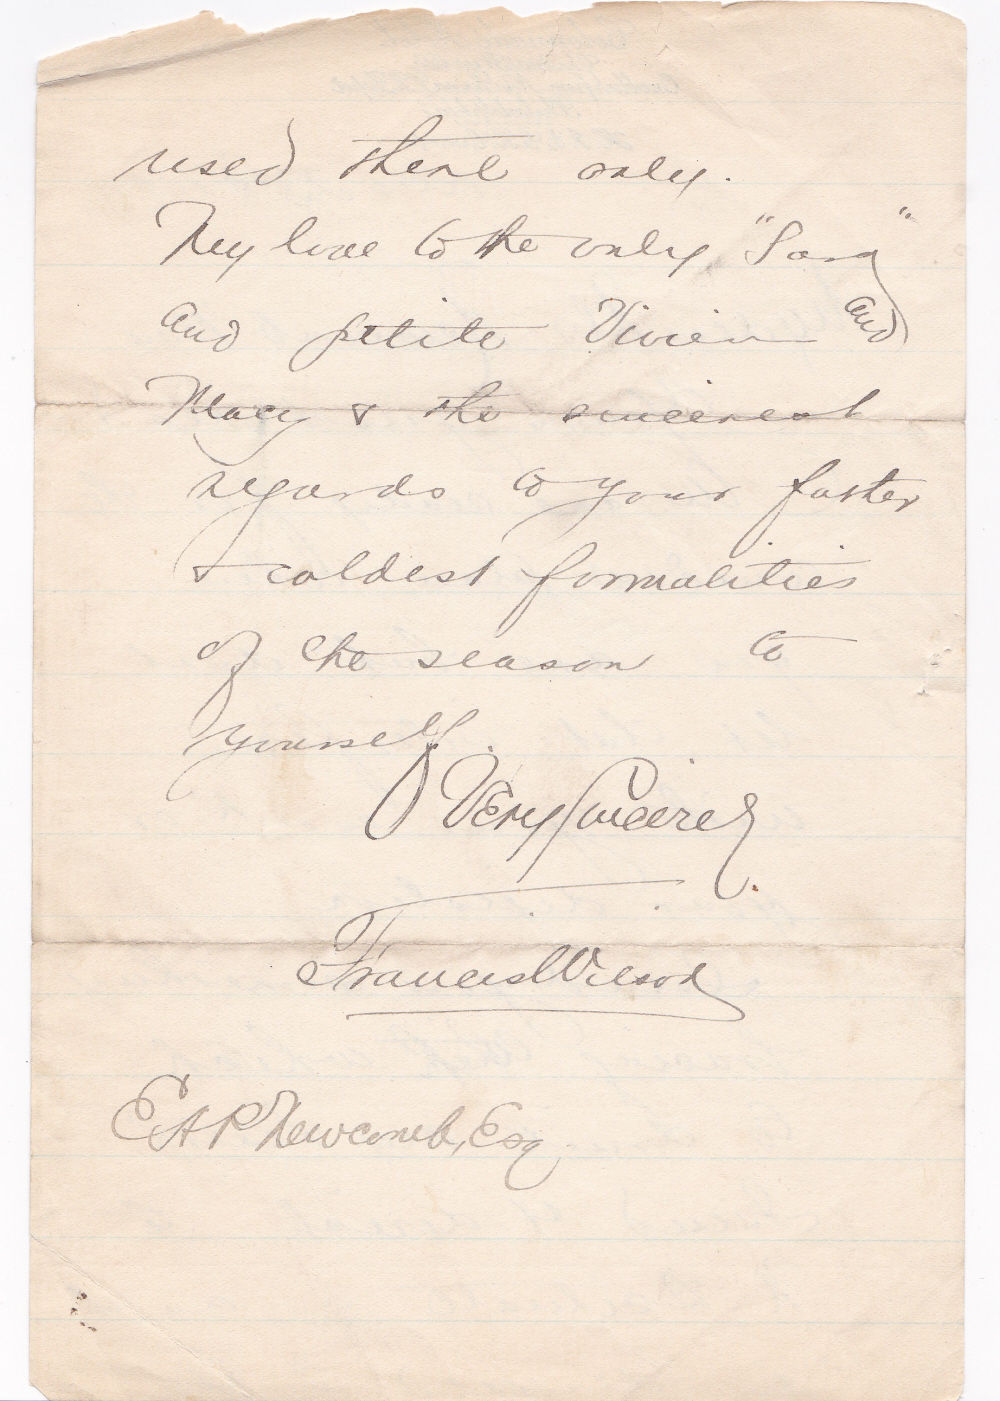 used there only.
My love to the only "Sara"
and petite Vivien and
Macy & the sincerest
regards to your foster
& coldest formalities
of the season to
yourself.
Very Sincerely
Francis Wilson
E A P Newcomb, Esq